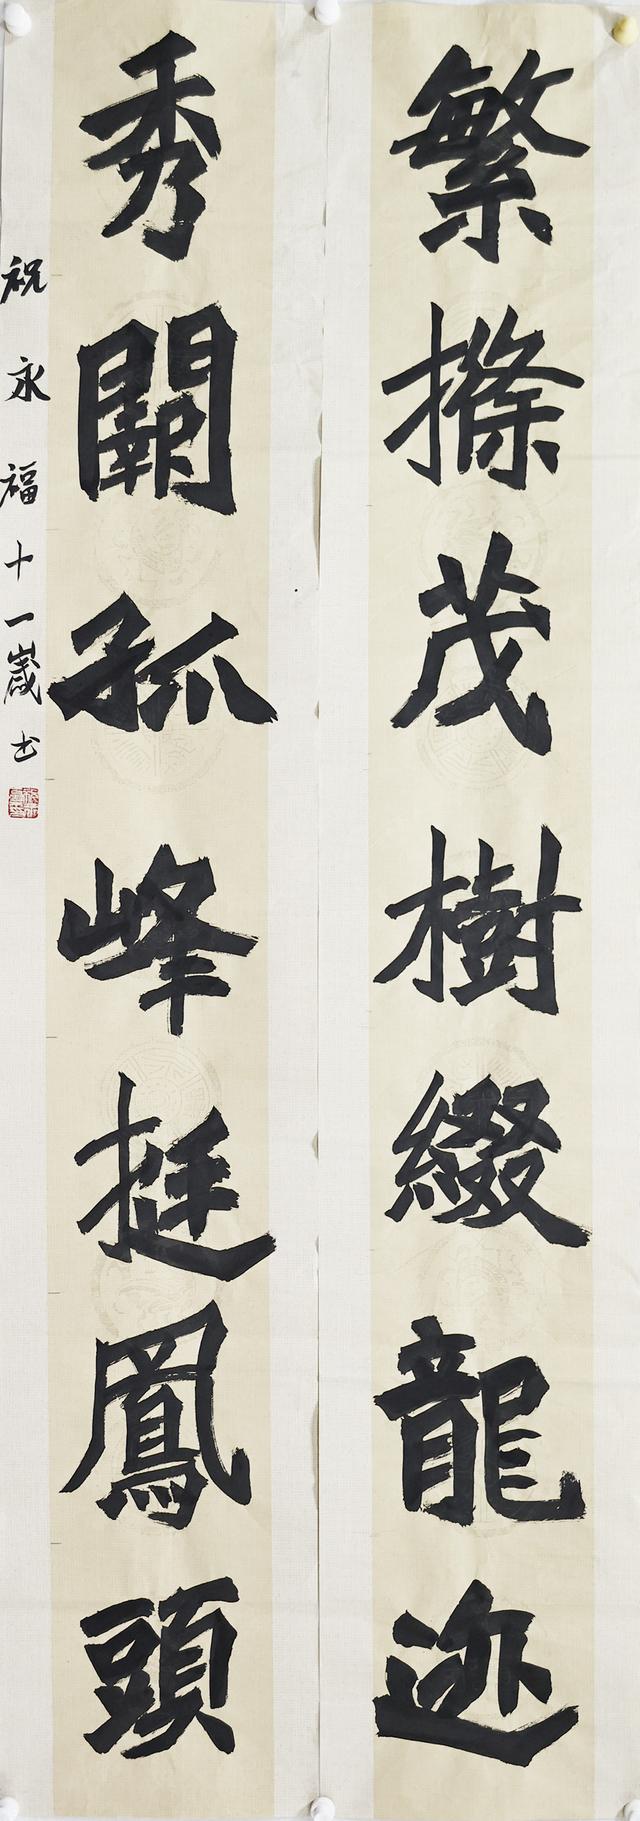 繁茂樹綴龍迹
秀闢孤峰挺鳳頭
祝永福十一歲书